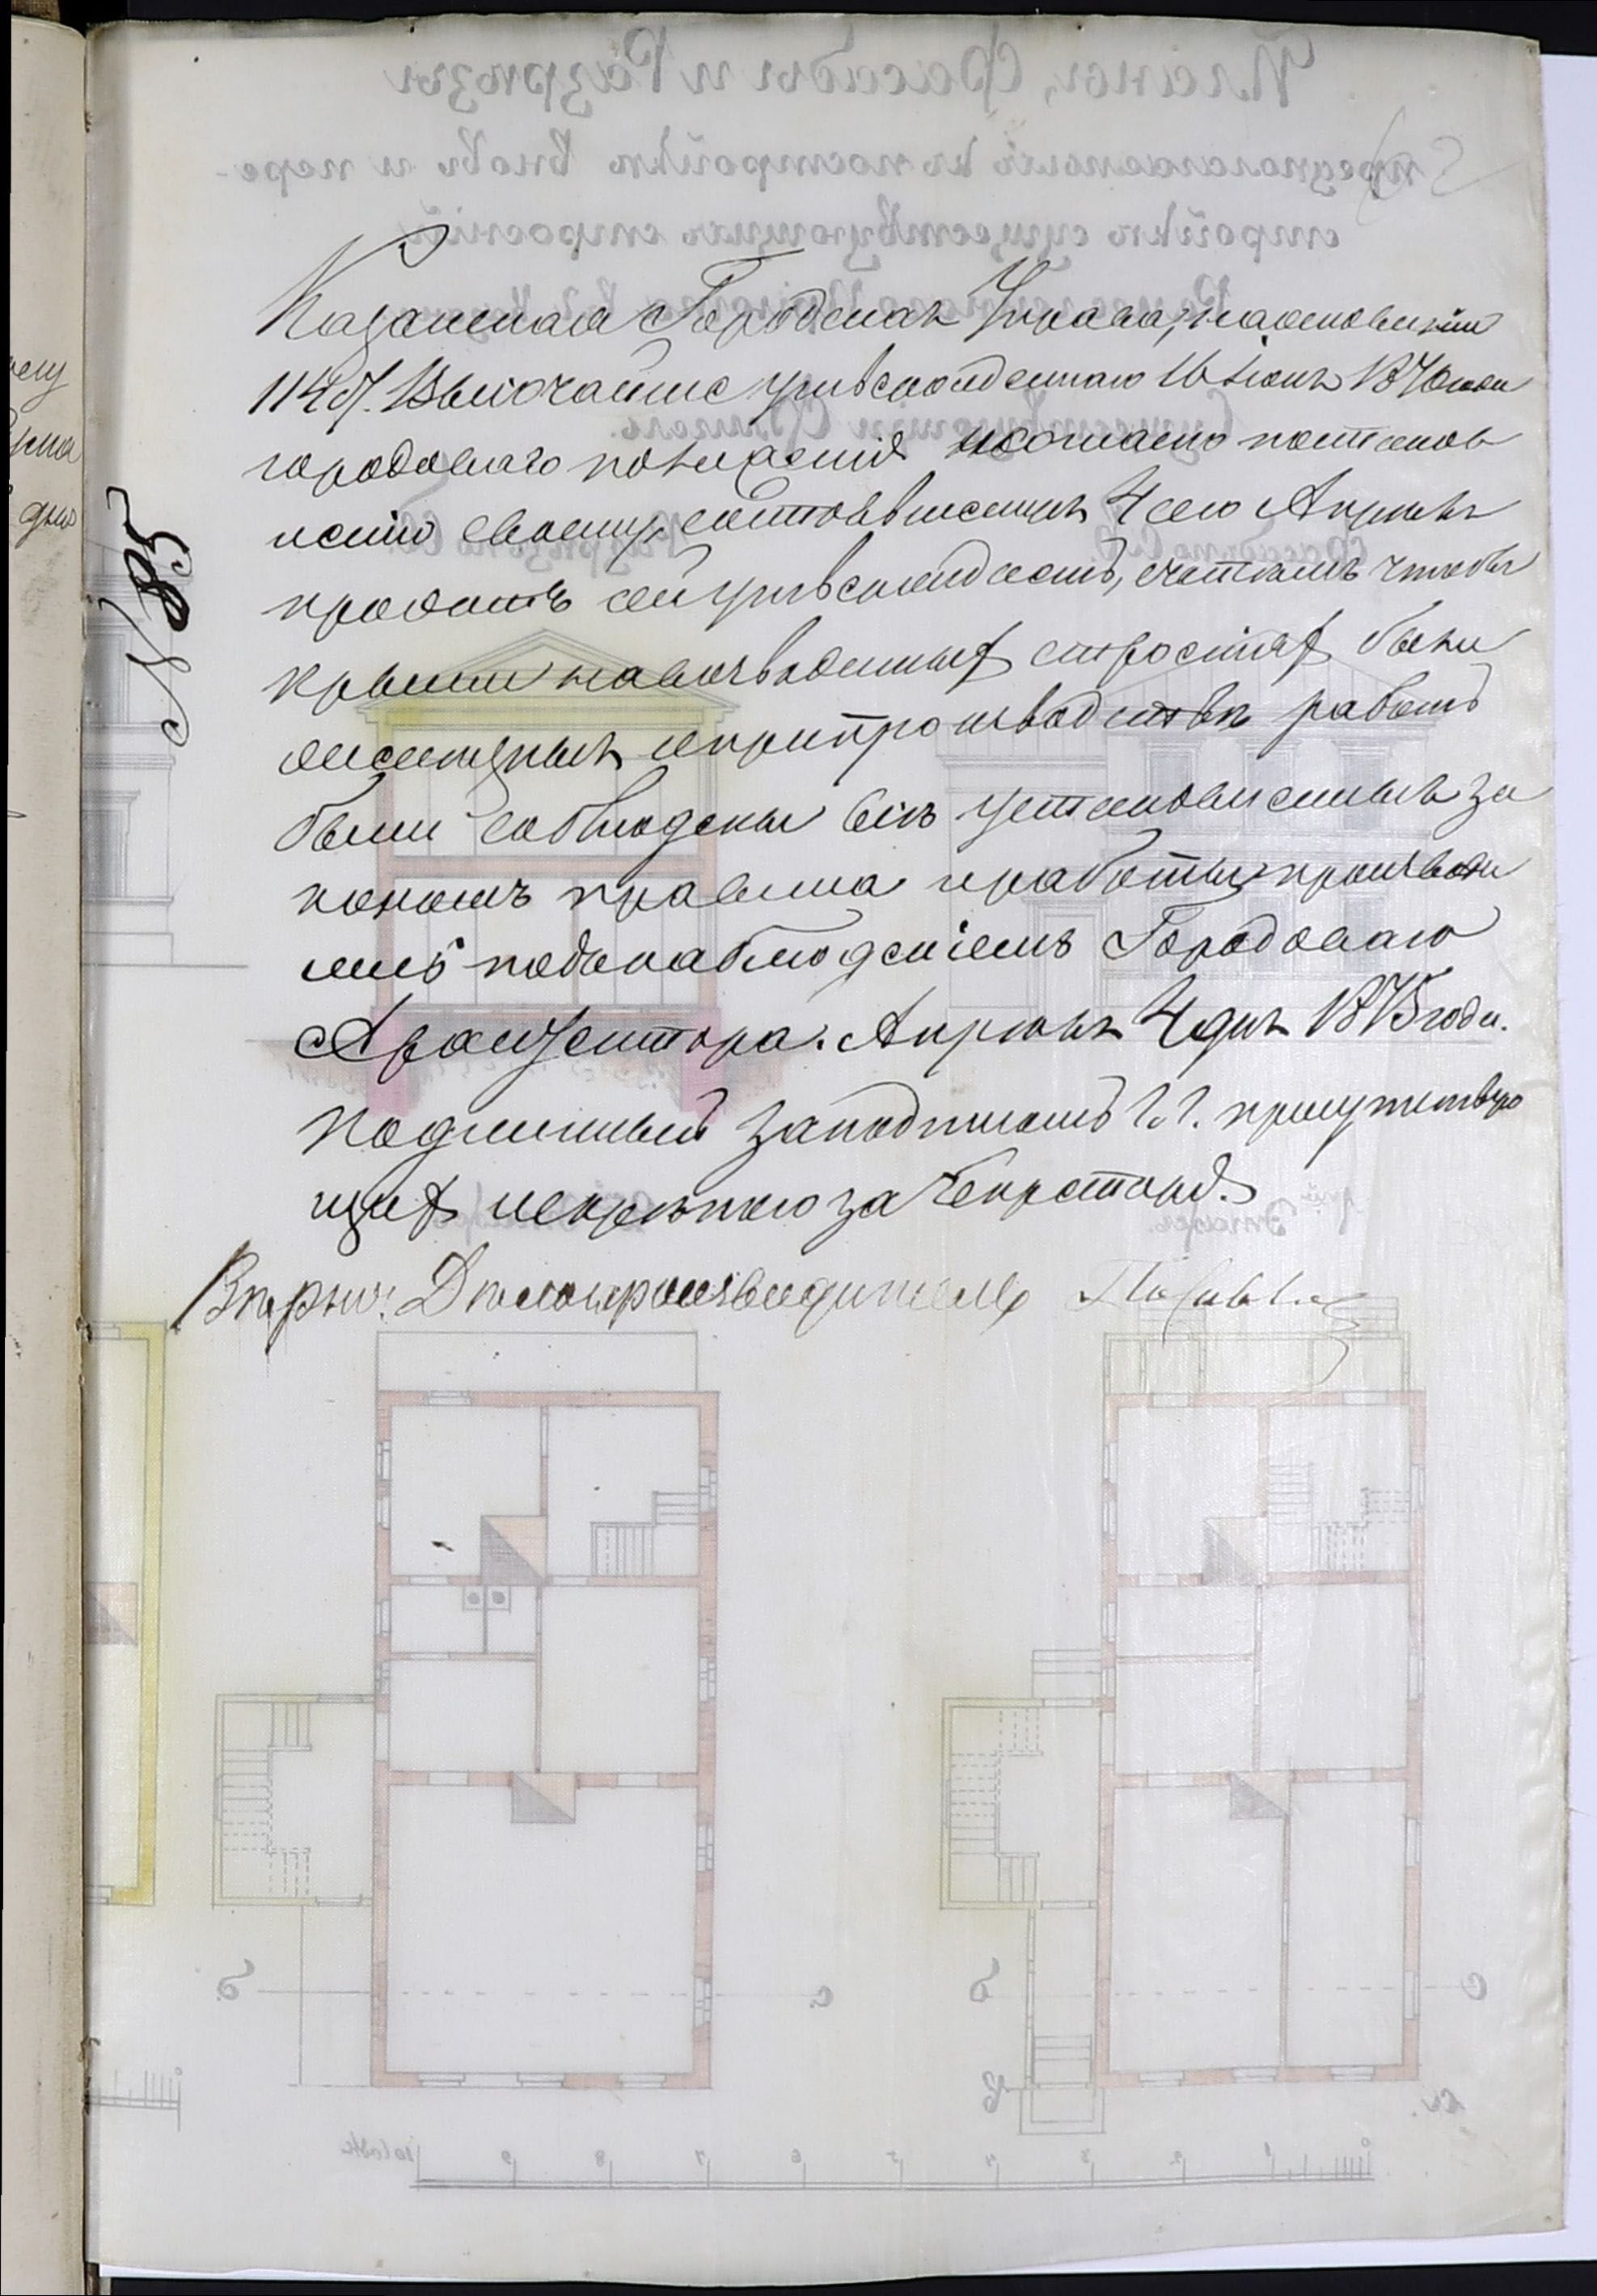 № 85
Казанская Городская Управа, на основании
114 §. Высочайше утвержденнаго 16 Июня 1870 года
городоваго положения и согласно постанов
лению своему, состоявшемуся 4 сего Апреля
проэктъ сей утверждаетъ, съ темъ чтобы
крыши на возводимыхъ строенияхъ были
железныя и при производстве работъ
были соблюдены все установленныя за
кономъ правила и работы производи
лись подъ наблюдениемъ Городоваго
Архитектора. Апреля 4 дня 1875 года.
Подлинный за подписомъ г. г. присутствую
щихъ и скрепою за Секретаря.
Верно: Делопроизводитель
Планы, Фасады и Разрезы
предполагаемыхъ къ постройке вновь и пере-
стройке существующихъ строений